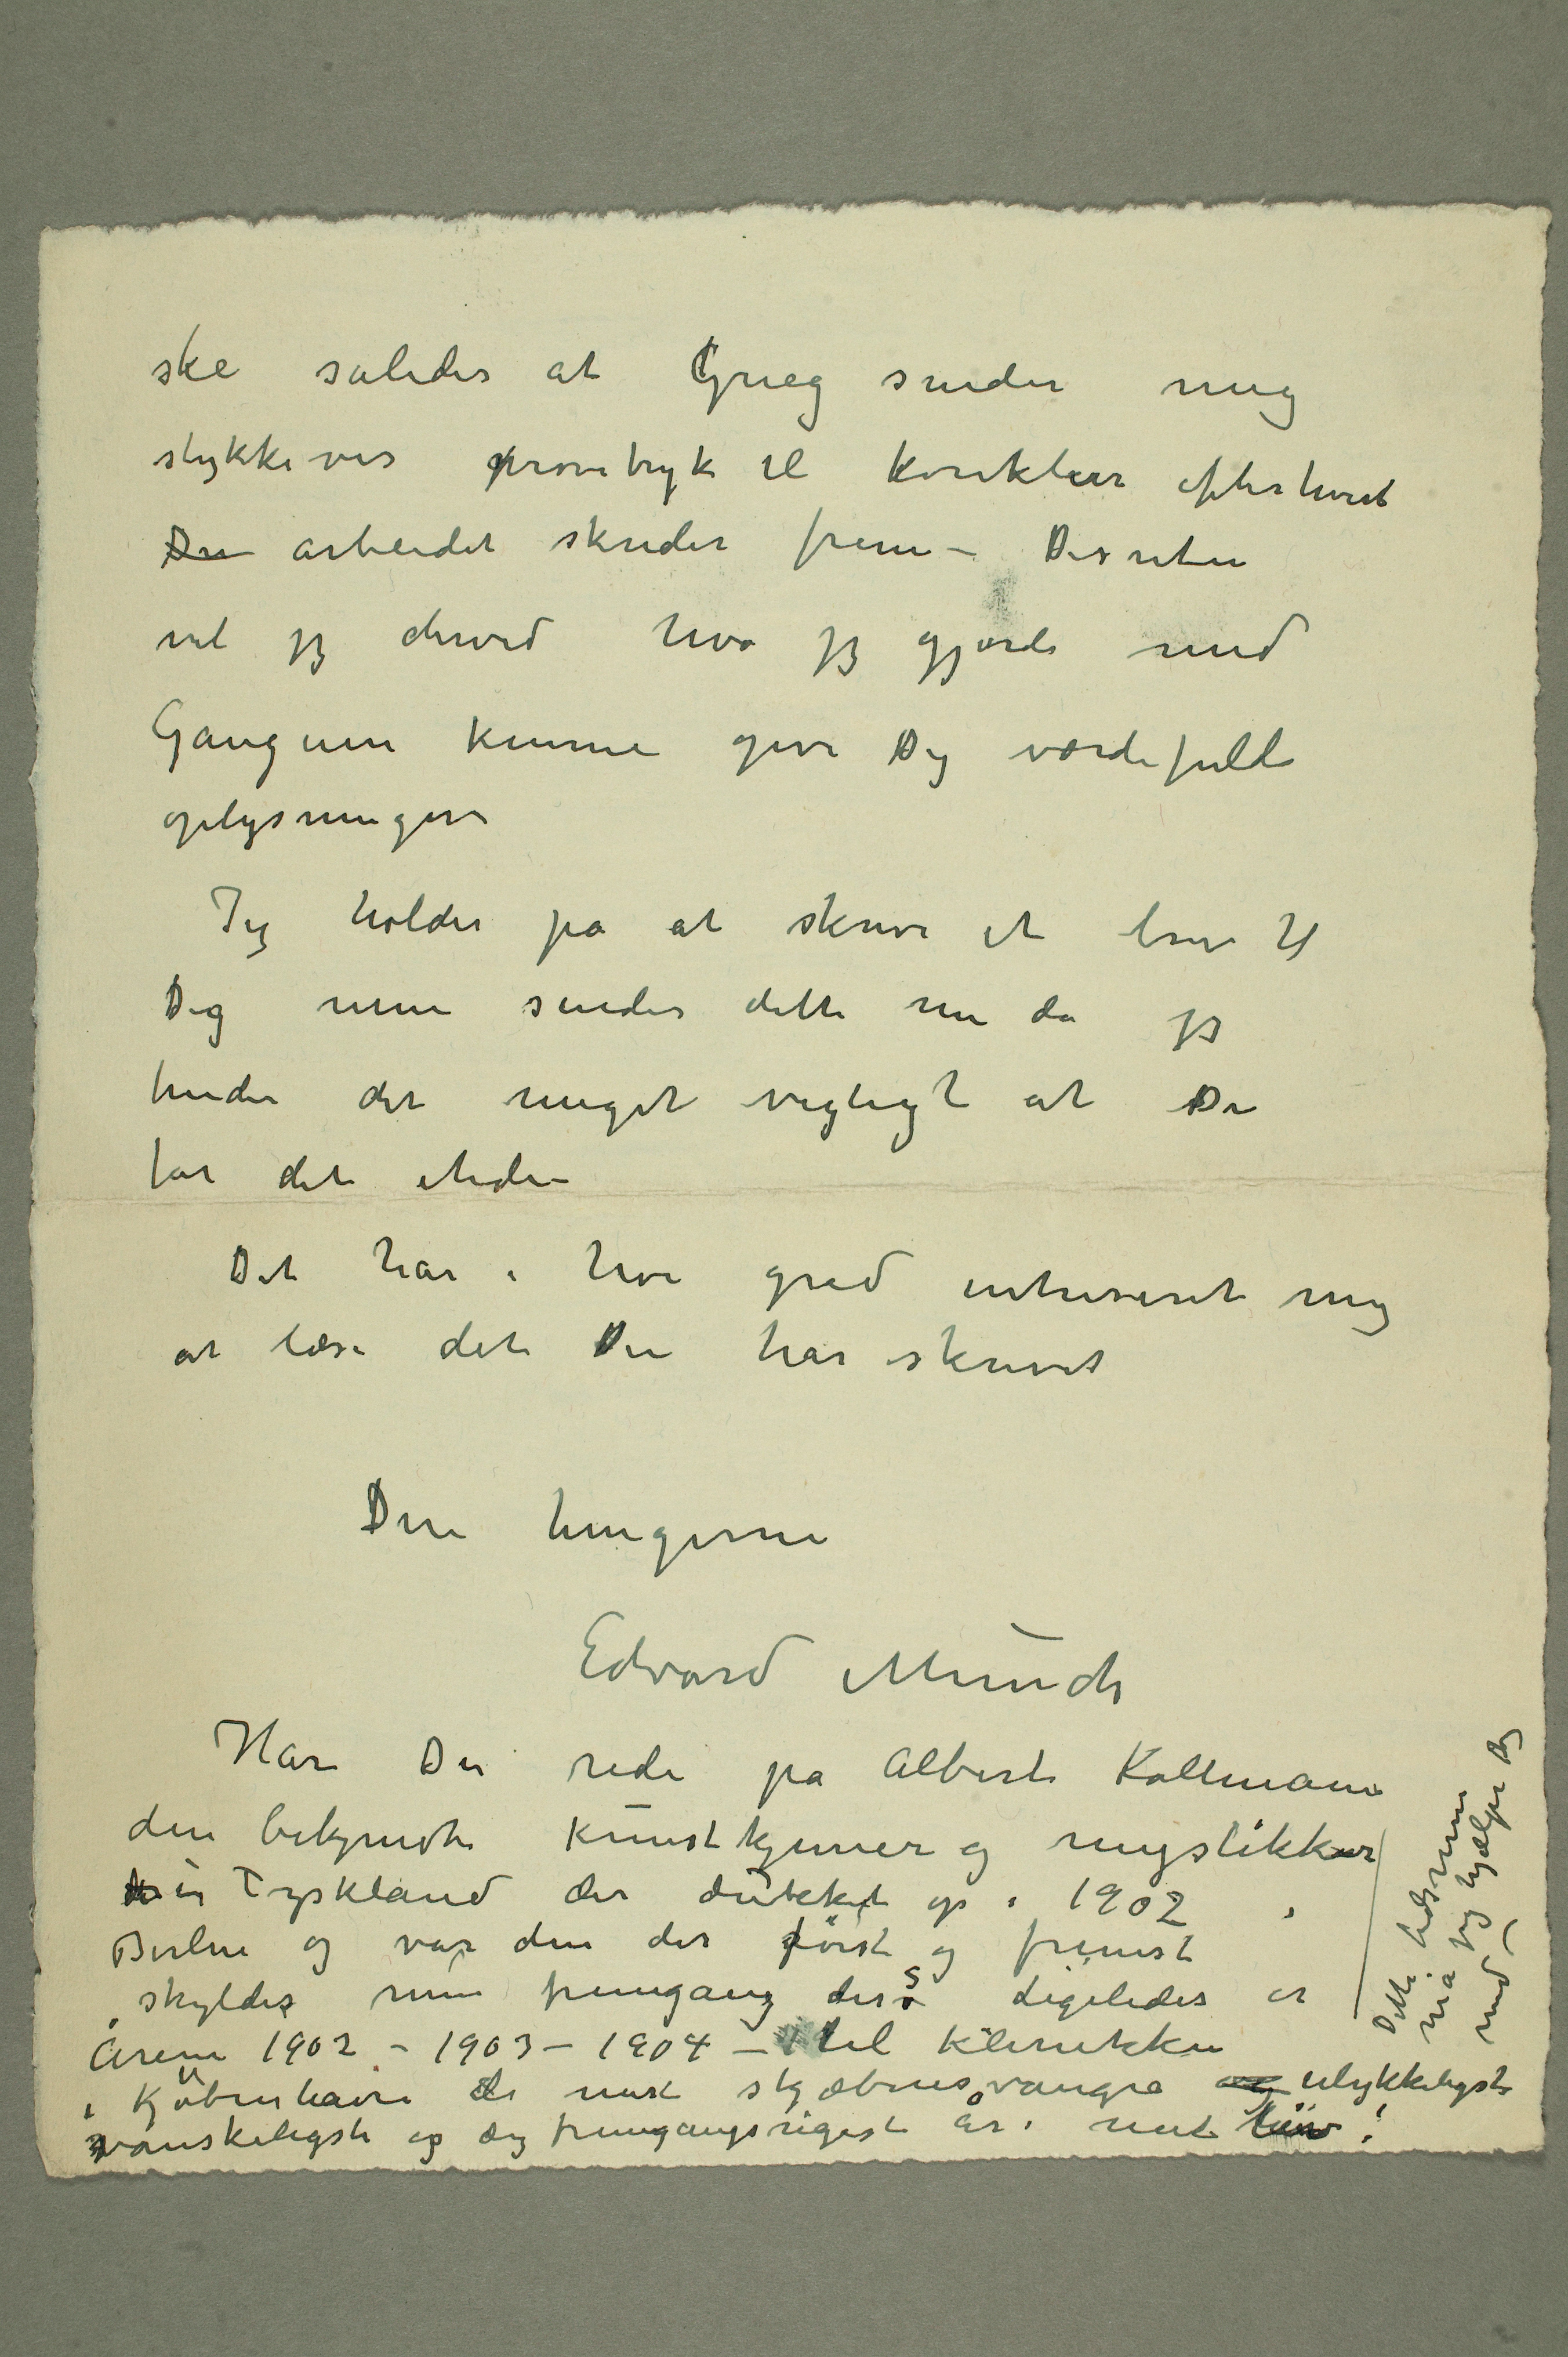 ske således at Grieg sender mig
stykkevis prøvetryk til korrektur efterhvert
Du arbeidet skrider frem – Desuten
vil jeg derved hva jeg gjorde med
Gauguin kunne give Dig værdifulde
oplysninger
Jeg holder på at skrive et brev til
Dig men sender dette nu da jeg
finder det meget vigtigt at Du
får det itide –
Det har i høi grad intreseret mig
at læse det Du har skrevet
Din hengivne
Edvard Munch
Har Du rede på Albert Kollmann
den bekjendte kunstkjenner og mystikker
i Tyskland der dukket op i 1902 i
Berlin og var den der først og fremst
skyldes min fremgang der. Ligeledes er
Årene 1902 – 1903 – 1904 – til klinikken
i Kjøbenhavn de mest skjæbnesvangre og ulykkeligste
vanskeligste og og fremgangsrigest år i mit liv!
Dette tidsrum
må jeg hjælpe Dig
med –